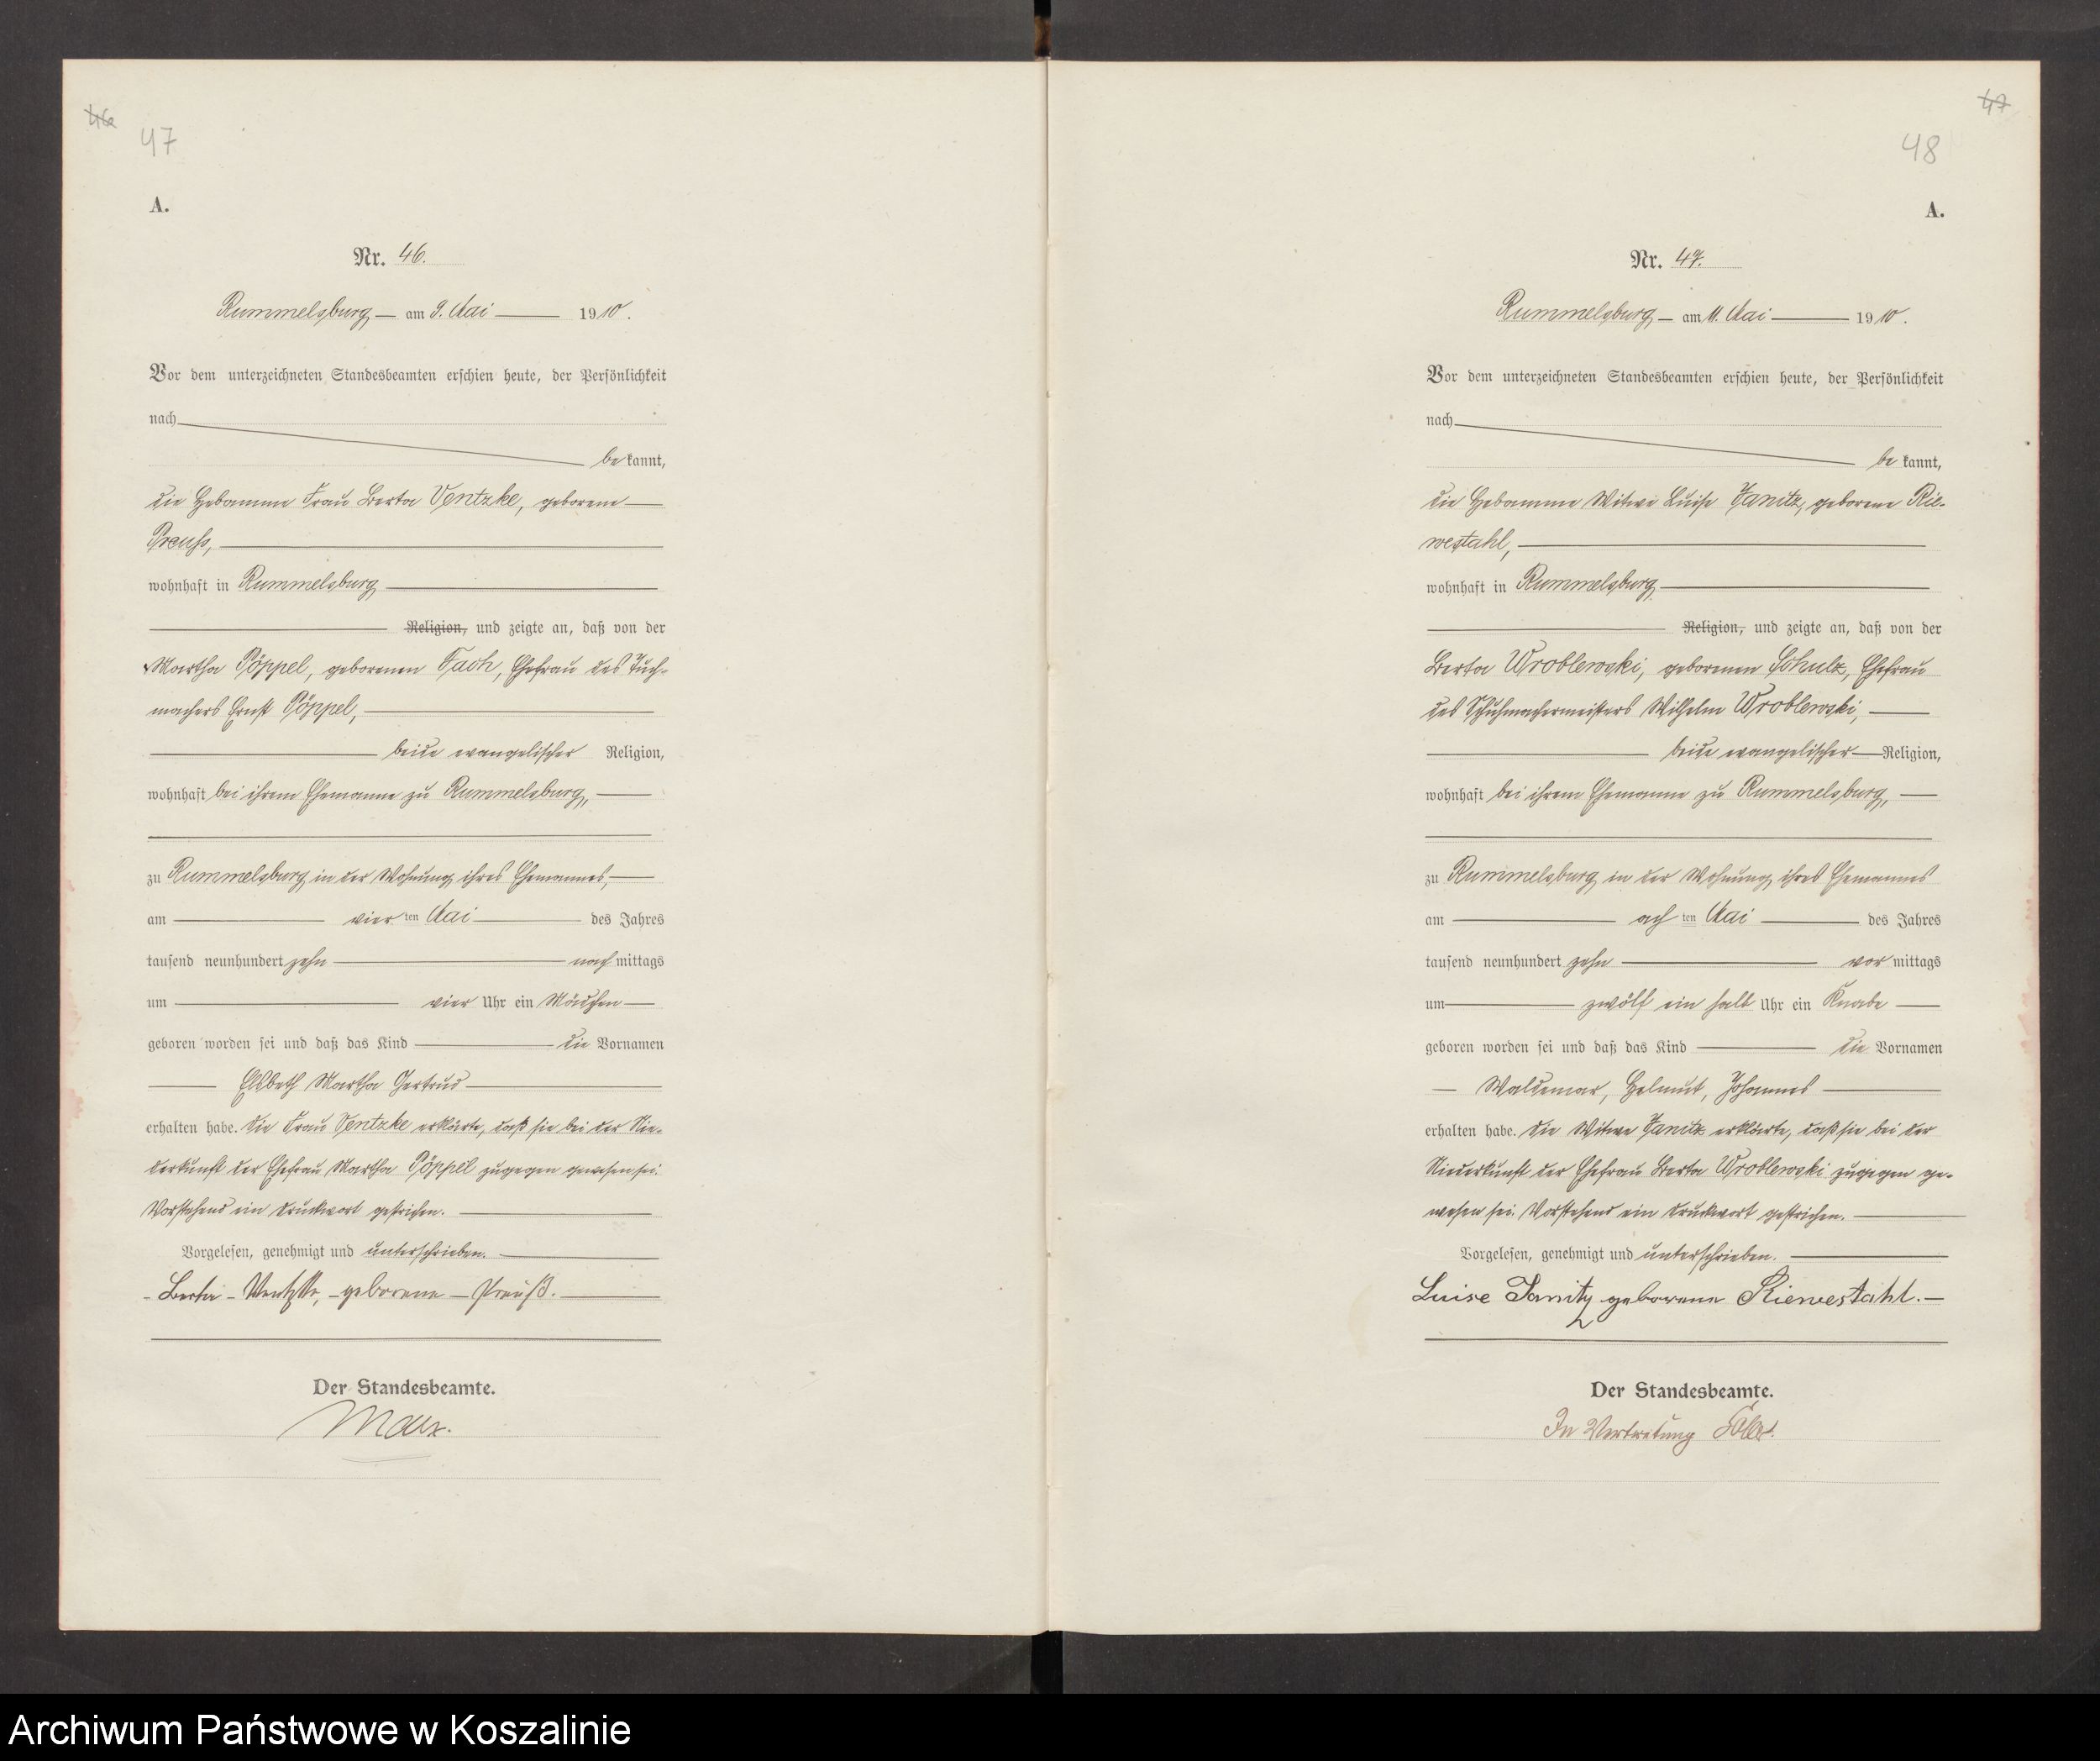 46
47
A.
Nr. 46.
Rummelsburg am 9. Mai 1910.
Vor dem unterzeichneten Standesbeamten erschien heute, der Persönlichkeit
nach
be kannt,
die Hebamme Frau Berta Ventzke, geborene
Preuß,
wohnhaft in Rummelsburg
Religion, und zeigte an, daß von der
Martha Pöppel, geborenen Fach, Ehefrau des Tuch-
machers Ernst Pöppel,
beide evangelischer Religion,
wohnhaft bei ihrem Ehemanne zu Rummelsburg,
zu Rummelsburg in der Wohnung ihres Ehemannes,
am vier ten Mai des Jahres
tausend neunhundert zehn nach mittags
um vier Uhr ein Mädchen
geboren worden sei und daß das Kind die Vornamen
Elsbeth Martha Gertrud
erhalten habe. Die Frau Ventzke erklärte, daß sie bei der Nie-
derkunft der Ehefrau Martha Pöppel zugegen gewesen sei.
Vorstehend ein Druckwort gestrichen.
Vorgelesen, genehmigt und unterschrieben.
Berta Ventzke, geborene Preuß.
Der Standesbeamte.
47
48
A.
Nr. 47.
Rummelsburg am 11. Mai 1910.
Vor dem unterzeichneten Standesbeamten erschien heute, der Persönlichkeit
nach
be kannt,
die Hebamme Witwe Luise Janitz, geborene Rie-
westahl,
wohnhaft in Rummelsburg
Religion, und zeigte an, daß von der
Berta Wroblewski, geborenen Schulz, Ehefrau
des Schuhmachermeisters Wilhelm Wroblewski,
beide evangelischer Religion,
wohnhaft bei ihrem Ehemanne zu Rummelsburg,
zu Rummelsburg in der Wohnung ihres Ehemannes
am ach ten Mai des Jahres
tausend neunhundert zehn vor mittags
um zwölf ein halb Uhr ein Knabe
geboren worden sei und daß das Kind die Vornamen
Waldemar, Helmut, Johannes
erhalten habe. Die Witwe Janitz erklärte, daß sie bei der
Niederkunft der Ehefrau Berta Wroblewski zugegen ge-
wesen sei. Vorstehend ein Druckwort gestrichen.
Vorgelesen, genehmigt und unterschrieben.
Luise Janitz geborene Riewestahl.
Der Standesbeamte.
In Vertretung
Archiwum Państwowe w Koszalinie